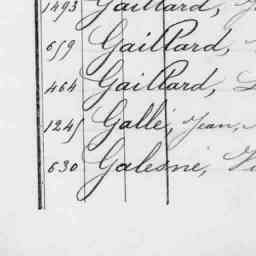 1493 Gaillard,
659 Gaillard,
464 Gaillard,
1245 Gallé, Jean,
630 Galesne,